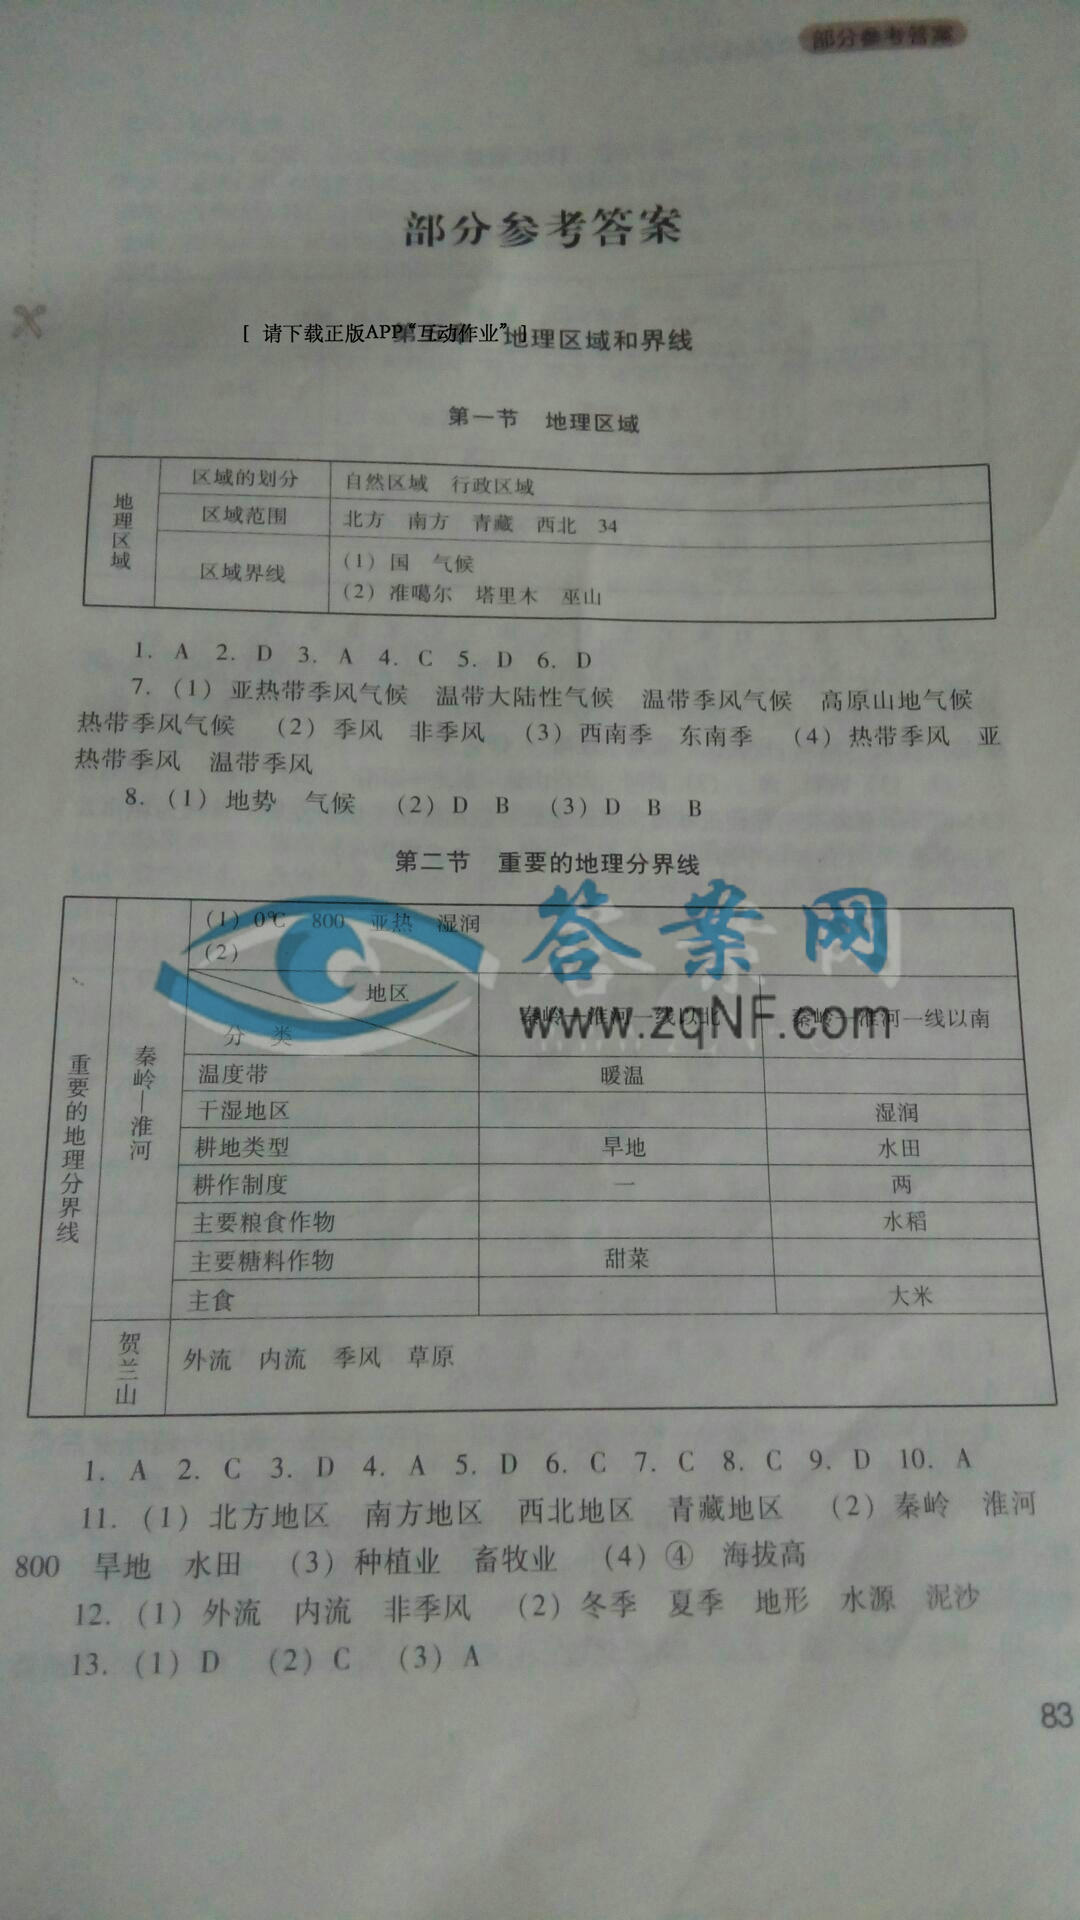 部分参考答案
部分参考答案
[ 请下载正版APP“互动作业” ]
地理区域和界线
第一节 地理区域
地理区域
区域的划分 自然区域 行政区域
区域范围 北方 南方 青藏 西北 34
区域界线 (1) 国 气候
(2) 准噶尔 塔里木 巫山
1. A 2. D 3. A 4. C 5. D 6. D
7. (1) 亚热带季风气候 温带大陆性气候 温带季风气候 高原山地气候
热带季风气候 (2) 季风 非季风 (3) 西南季 东南季 (4) 热带季风 亚
热带季风 温带季风
8. (1) 地势 气候 (2) D B (3) D B B
第二节 重要的地理分界线
重要的地理分界线
秦岭—淮河
(1) 0℃ 800 亚热 湿润
(2)
答案网
www.zqNF.com
地区
分类
秦岭—淮河一线以北 秦岭—淮河一线以南
温度带 暖温
干湿地区 湿润
耕地类型 旱地 水田
耕作制度 一 两
主要粮食作物 水稻
主要糖料作物 甜菜
主食 大米
贺兰山
外流 内流 季风 草原
1. A 2. C 3. D 4. A 5. D 6. C 7. C 8. C 9. D 10. A
11. (1) 北方地区 南方地区 西北地区 青藏地区 (2) 秦岭 淮河
800 旱地 水田 (3) 种植业 畜牧业 (4) ④ 海拔高
12. (1) 外流 内流 非季风 (2) 冬季 夏季 地形 水源 泥沙
13. (1) D (2) C (3) A
83